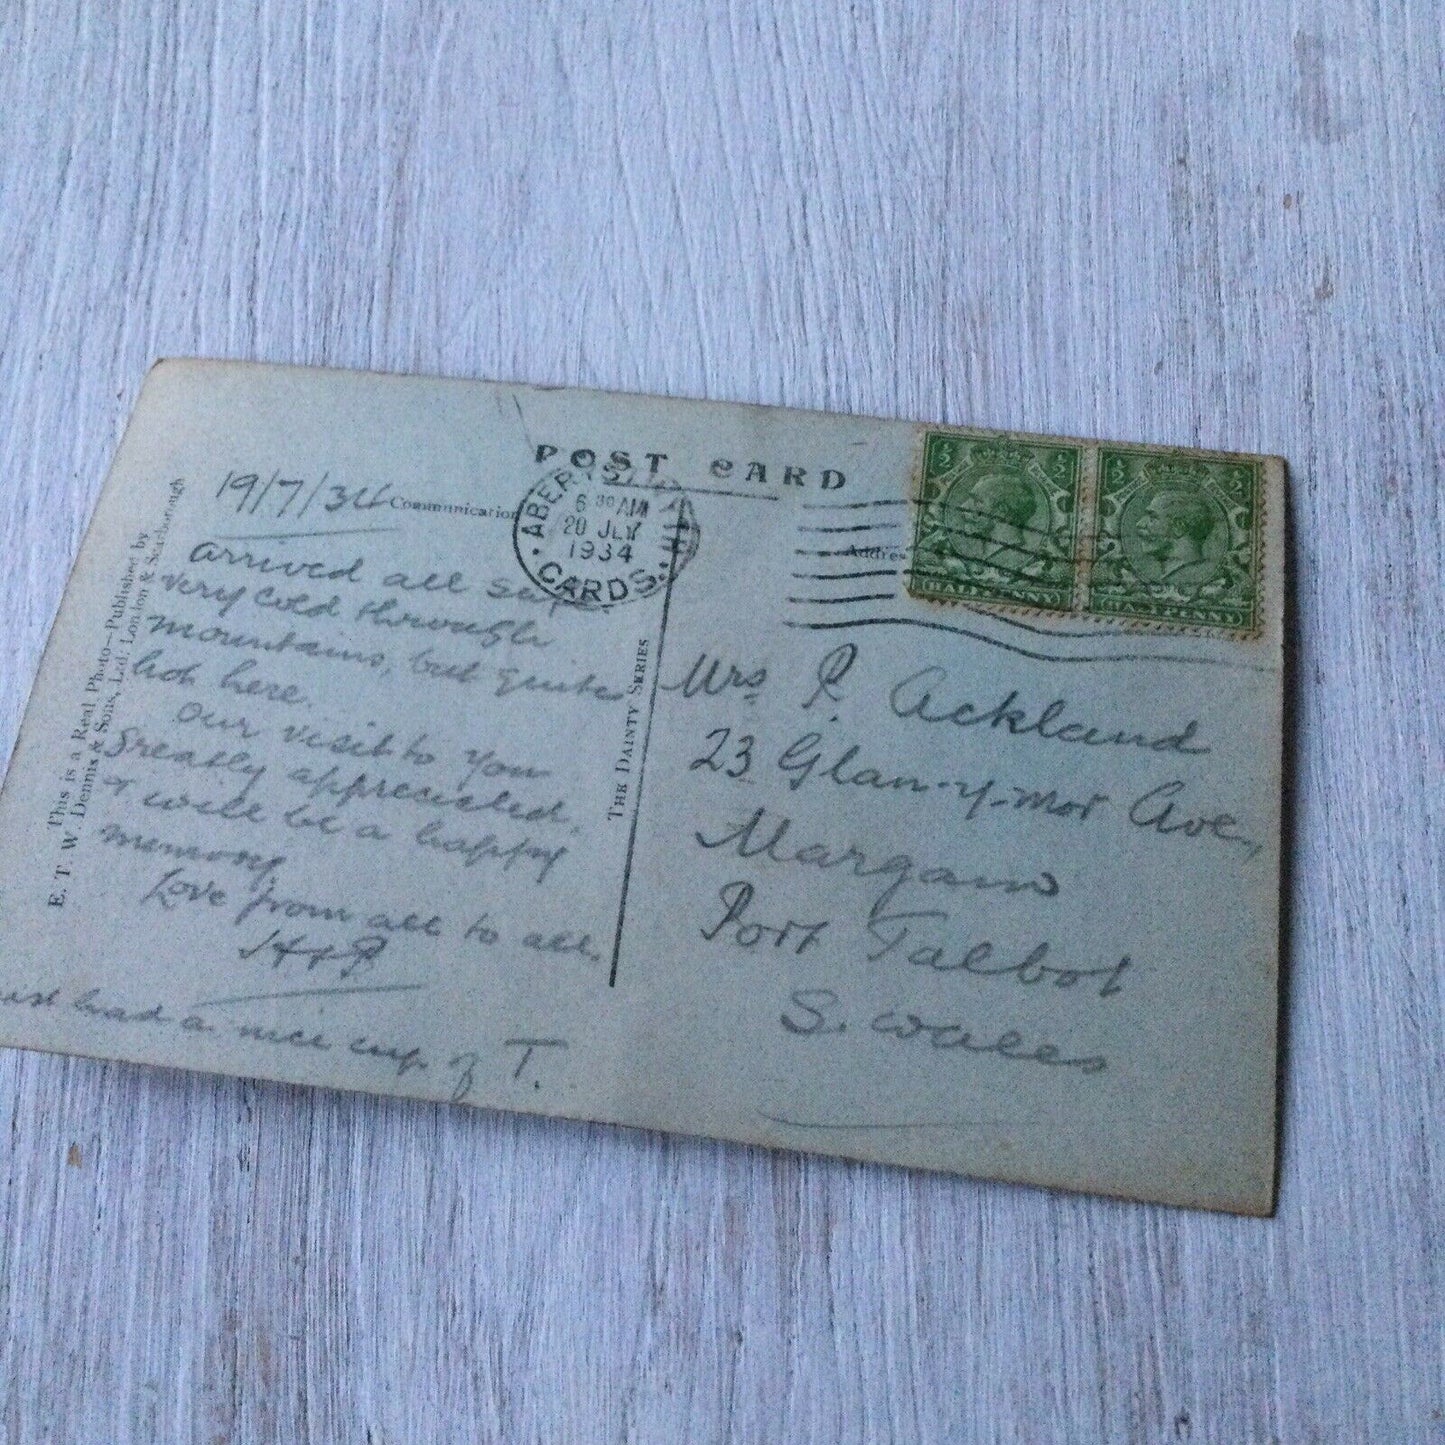 POST CARD
19/7/34 Communication
Arrived all safe
very cold through
mountains, but quite
hot here.
Our visit to you
greatly appreciated,
& will be a happy
memory
Love from all to all.
H & P
had a nice cup of T.
This is a Real Photo—Published by
E. T. W. Dennis & Sons, Ltd., London & Scarborough
THE DAINTY SERIES
6 30 AM
20 JLY
1934
CARDS.
Address
½ ½
HALFPENNY
½ ½
HALFPENNY
Mrs P. Ackland
23 Glan-y-mor Ave.,
Margam
Port Talbot
S. Wales